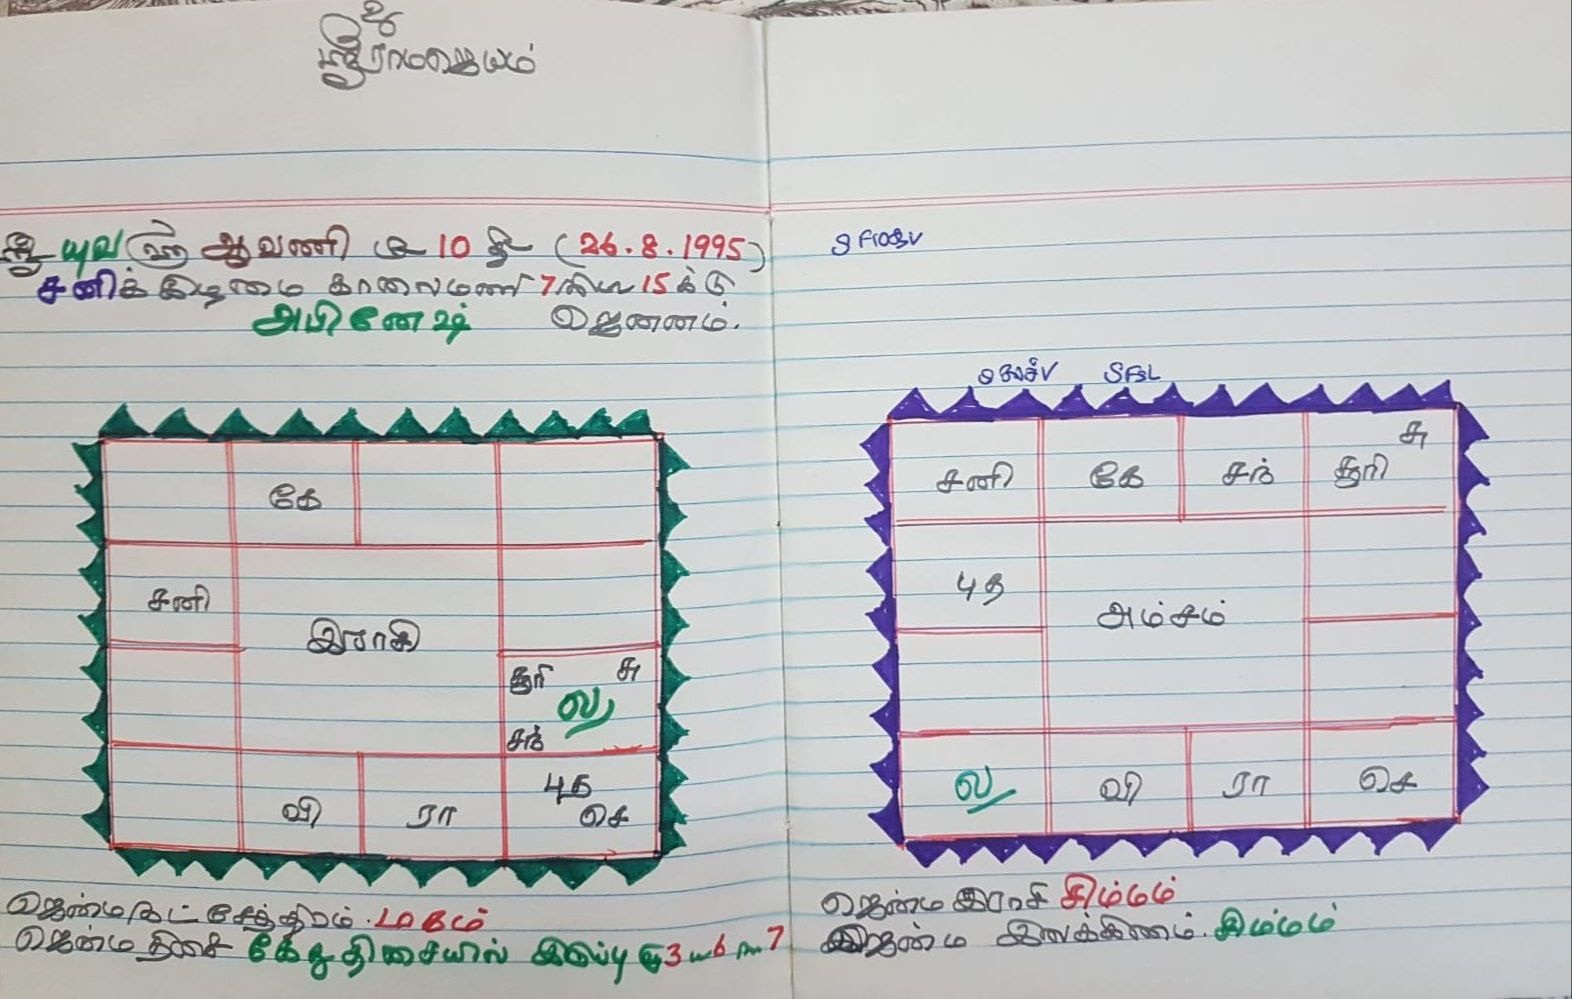 உ
ஸ்ரீராமஜெயம்
யுவ ஆவணி 10 (26.8.1995)
சனிக்கிழமை காலைமணி 7 15 க்கு
அபினேஷ் ஜெனனம்.
கே
சனி
இராசி
சூரி சு
ல
சந்
வி ரா புத
செ
சு
சனி கே சந் சூரி
புத
அம்சம்
ல வி ரா செ
ஜென்ம நட்சேத்திரம். மகம்
ஜென்ம திசை கேது திசையில் இருப்பு 3 6 7
ஜென்ம இராசி சிம்மம்
ஜென்ம இலக்கினம். சிம்மம்